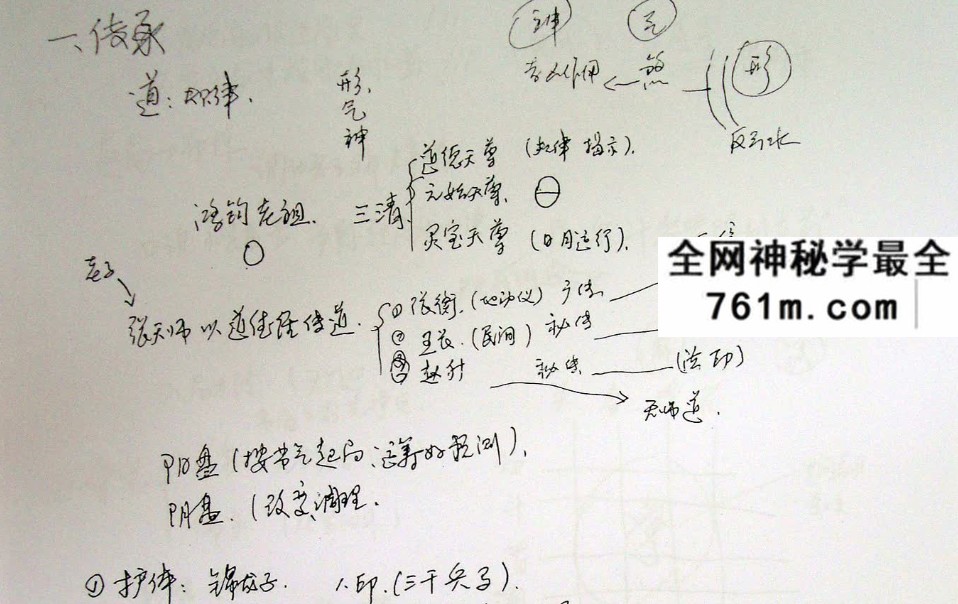 一、传承
神 气
道：规律. 形 气 神
作用 ← 煞 — 形
反引水
鸿钧老祖. 三清
道德天尊 (规律 揭示).
元始天尊.
灵宝天尊 (日月运行).
老子
张天师 以 道德经 传道.
① 张衡. (地动仪)
② 王长. (民间) 秘传
③ 赵升 秘传 (法印)
天师道.
全网神秘学最全
761m.com
阳盘 (按节气起局 运筹 预测).
阴盘. (改变 调理.
① 护体： 印. (三千弟子).